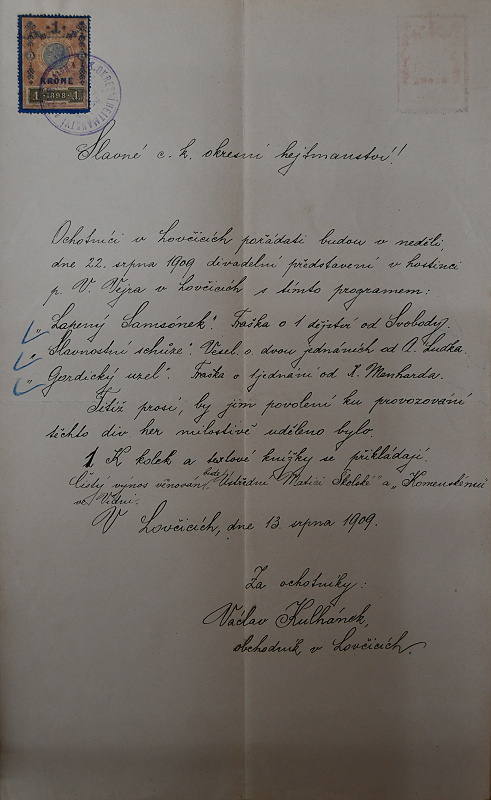 1
KRONE
1 1898 1
Slavné c. k. okresní hejtmanství!
Ochotníci v Lovčicích pořádati budou v neděli,
dne 22. srpna 1909 divadelní představení v hostinci
p. V. Vejra v Lovčicích s tímto programem:
„Lapený Samsónek“. Fraška o 1 dějství od Svobody.
„Slavnostní schůze“. Vesel. o dvou jednáních od A.
„Gordický uzel“. Fraška o 1 jednání od X. Menharda.
Tětíž prosí, by jim povolení ku provozování
těchto div. her milostivě uděleno bylo.
1 K kolek a textové knížky se přikládají.
Čistý výnos věnován bude „Ústřední Matici Školské“ a „Komenskému“
ve Vídni.
V Lovčicích, dne 13. srpna 1909.
Za ochotníky:
Václav Kulhánek,
obchodník v Lovčicích.